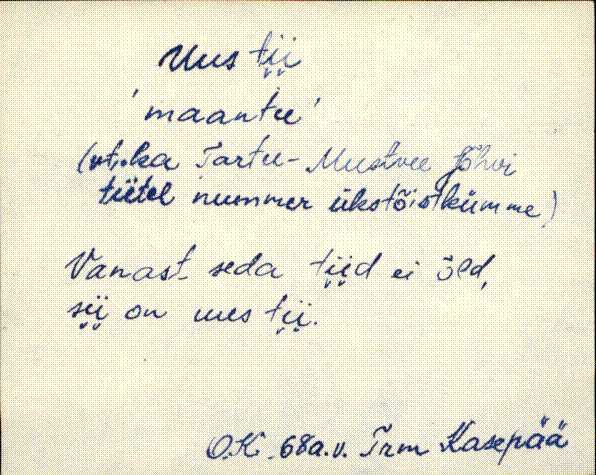 Uus ti̮i̮
'maantee'
(vt. ka Tartu-Mustvee Jõhvi
tiitel nummer ükstõistkümme)
Vanast seda ti̮i̮d ei õld,
si̮i̮ on uus ti̮i̮.
O.K. 68 a.v. Trm Kasepää